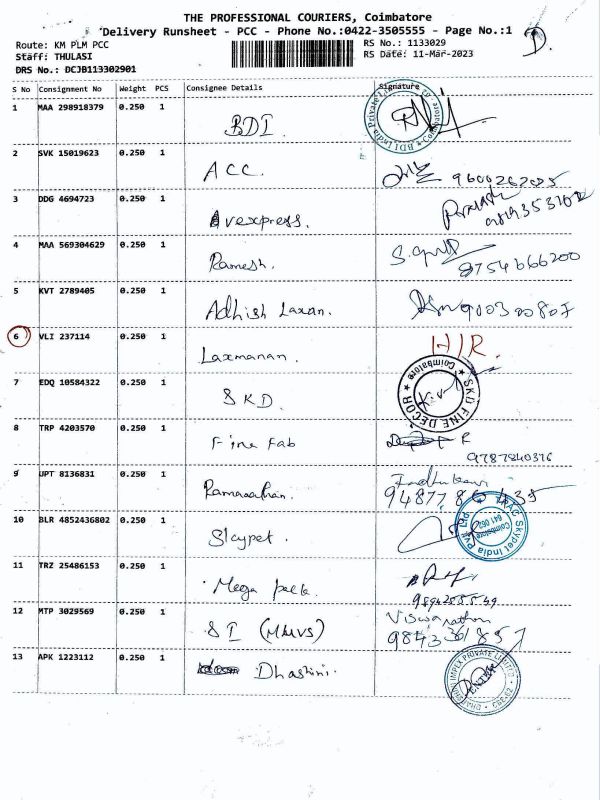 THE PROFESSIONAL COURIERS, Coimbatore
Delivery Runsheet - PCC - Phone No.:0422-3505555 - Page No.:1
Route: KM PLM PCC
Staff: THULASI
DRS No.: DCJB113302901
RS No.: 1133029
RS Date: 11-Mar-2023
D.
S No Consignment No Weight PCS Consignee Details Signature
1 MAA 298918379 0.250 1 BDI
BDI India Private Li Coimbatore
2 SVK 15019623 0.250 1 ACC.
3 DDG 4694723 0.250 1 Avexpress.
4 MAA 569304629 0.250 1 Ramesh. 9754666200
5 KVT 2789405 0.250 1 Adhish Laxan.
6 VLI 237114 0.250 1 Laxmanan. H/R.
7 EDQ 10584322 0.250 1 SKD.
SKD FINE DECOR Coimbatore
8 TRP 4203570 0.250 1 Fine Fab R
9787840376
9 UPT 8136831 0.250 1
10 BLR 4852436802 0.250 1 Skypet.
Skypet India Pvt Ltd Coimbatore 641 062
11 TRZ 25486153 0.250 1 Mega pack.
12 MTP 3029569 0.250 1 SI (MMVS) Viswanathan
9843361857
13 APK 1223112 0.250 1 Dhashini.
DHASHINI IMPEX PRIVATE LIMITED CBE-62